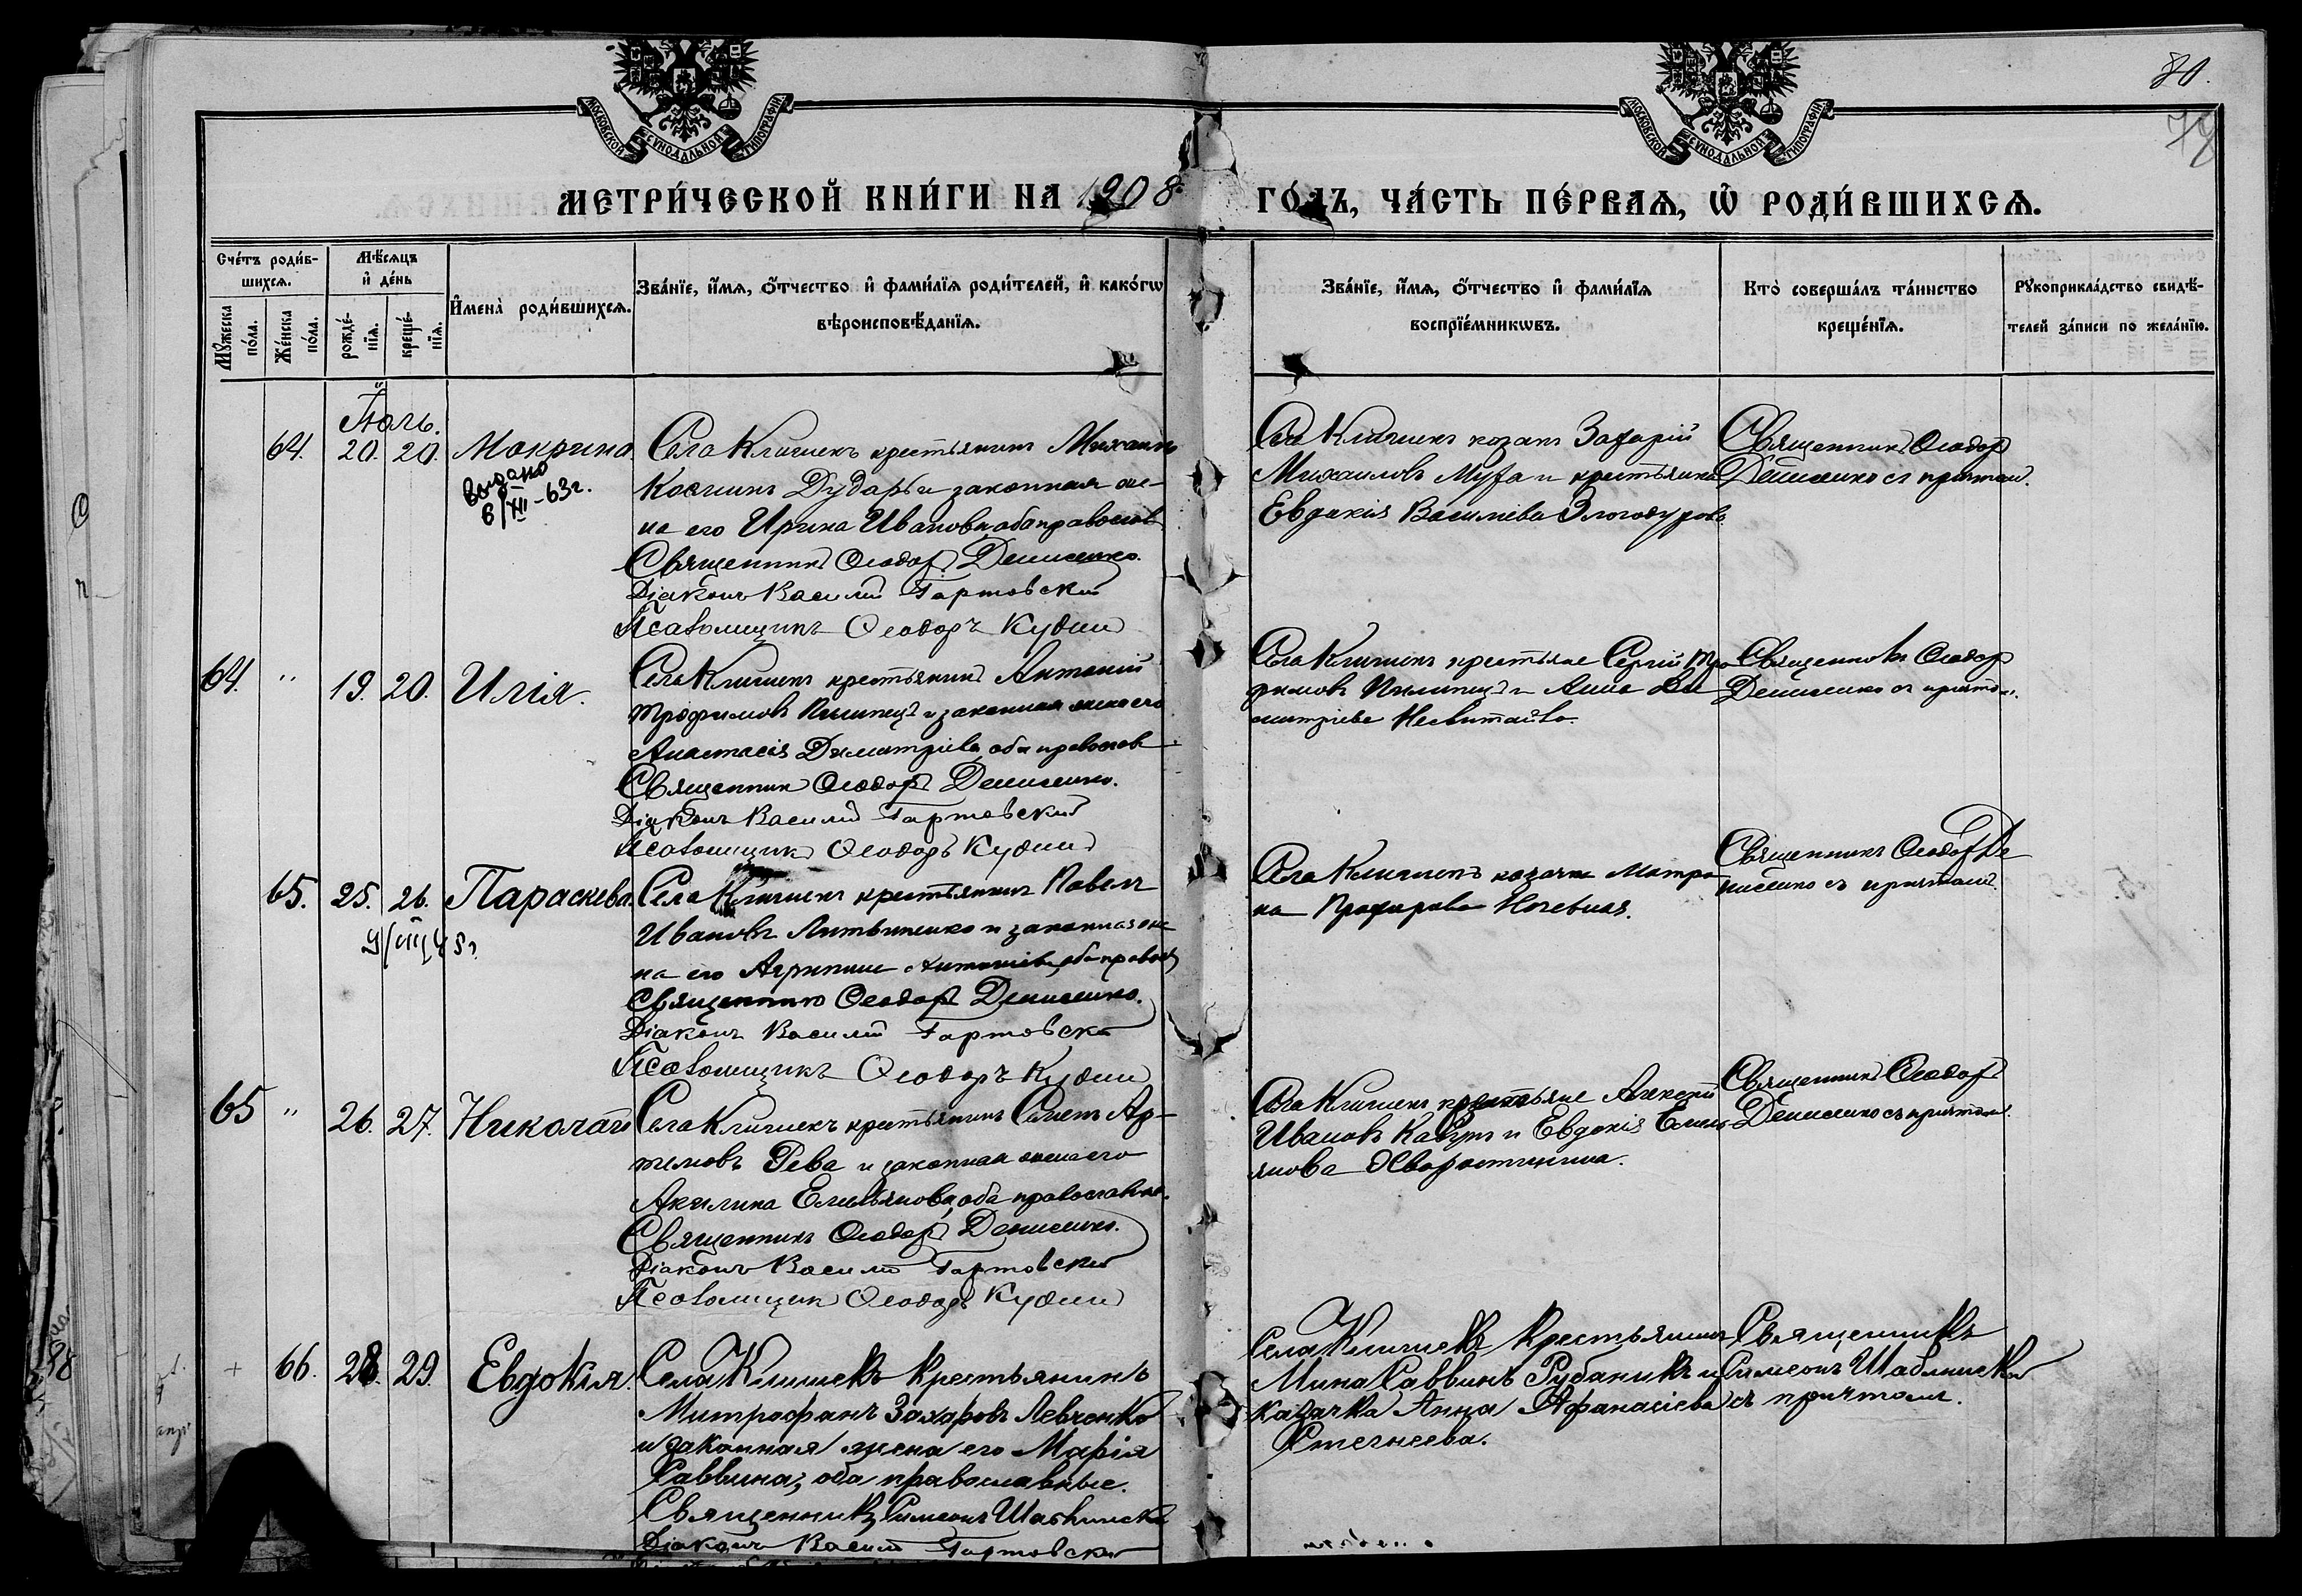 80.
МОСКОВСКОЙ СѴНОДАЛЬНОЙ ТИПОГРАФІИ
МОСКОВСКОЙ СѴНОДАЛЬНОЙ ТИПОГРАФІИ
МЕТРИ́ЧЕСКОЙ КНИ́ГИ НА 1908
ГО́ДЪ, ЧА́СТЬ ПЕ́РВАѦ, Ѡ҆ РОДИ́ВШИХСѦ.
Сче́тъ роди́в-
шихсѧ.
Мѣ́сѧцъ
и҆ де́нь
И҆мена̀ роди́вшихсѧ.
Зва́нїе, и҆́мѧ, ѻ҆́тчество и҆ фами́лїѧ роди́телей, и҆ како́гѡ
вѣроисповѣ́данїѧ.
Мꙋ́жеска
по́ла.
Же́нска
по́ла.
рожде́-
нїѧ.
креще́-
нїѧ.
Зва́нїе, и҆́мѧ, ѻ҆́тчество и҆ фами́лїѧ
воспрїе́мникѡвъ.
Кто̀ соверша́лъ та́инство
креще́нїѧ.
Рꙋкоприкла́дство свидѣ́-
телей за́писи по жела́нїю.
Іюль.
64. 20. 20. Макрина
выдано
6/XII-63г.
Села Клишекъ крестьянинъ Михаилъ
Косминъ Дударь и законная же-
на его Ирина Иванова, оба православ
Священникъ Ѳеодоръ Денисенко.
Діаконъ Василій Гартовскій
Псаломщикъ Ѳеодоръ Кудин
Села Клишекъ козакъ Захарій
Михаиловъ Муха и крестьянка
Евдокія Василіева
Священникъ Ѳеодоръ
Денисенко съ причтом.
64. " 19. 20. Илія.
Села Клишекъ крестьянинъ Антоній
Трофимовъ Пилипецъ и законная жена его
Анастасія Димитріева, оба православ
Священник Ѳеодоръ Денисенко.
Діаконъ Василій Гартовскій
Псаломщикъ Ѳеодоръ Кудин
Села Клишекъ крестьяне Сергій Тро
фимовъ Пилипецъ и Анна Ди
митріева
Священникъ Ѳеодор
Денисенко съ причтом.
65. 25. 26. Параскева.
Села Клишекъ крестьянинъ Павелъ
Ивановъ Литвиненко и законная же
на его Агрипина Антоніева, оба правосл
Священникъ Ѳеодоръ Денисенко.
Діаконъ Василій Гартовскій
Псаломщикъ Ѳеодоръ Кудин
Села Клишекъ козачка Матро
на
Священникъ Ѳеодоръ Де
нисенко съ причтомъ.
65 " 26. 27. Николай
Села Клишекъ крестьянинъ Ар-
темовъ Рева и законная жена его
Акилина Емельянова, оба православные.
Священникъ Ѳеодоръ Денисенко.
Діаконъ Василій Гартовскій
Псаломщик Ѳеодоръ Кудин
Села Клишекъ крестьяне Алексѣй
Ивановъ и Евдокія Емель
янова
Священникъ Ѳеодоръ
Денисенко съ причтом.
+ 66. 28. 29. Евдокія.
Села Клишекъ крестьянинъ
Митрофанъ Захаровъ Левченко
и законная жена его Марія
Саввина; оба православные.
Священникъ Симеонъ Шаблинскій
Діаконъ Василій Гартовскій
Села Клишекъ крестьянинъ
Мина Саввинъ Рубаникъ и
казачка Анна Афанасіева
Стегнеева.
Священникъ
Симеонъ Шаблинскій
съ причтомъ.